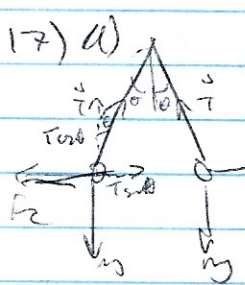 17) a)
θ θ
T T
θ
Tcosθ
Tsinθ
F
mg mg